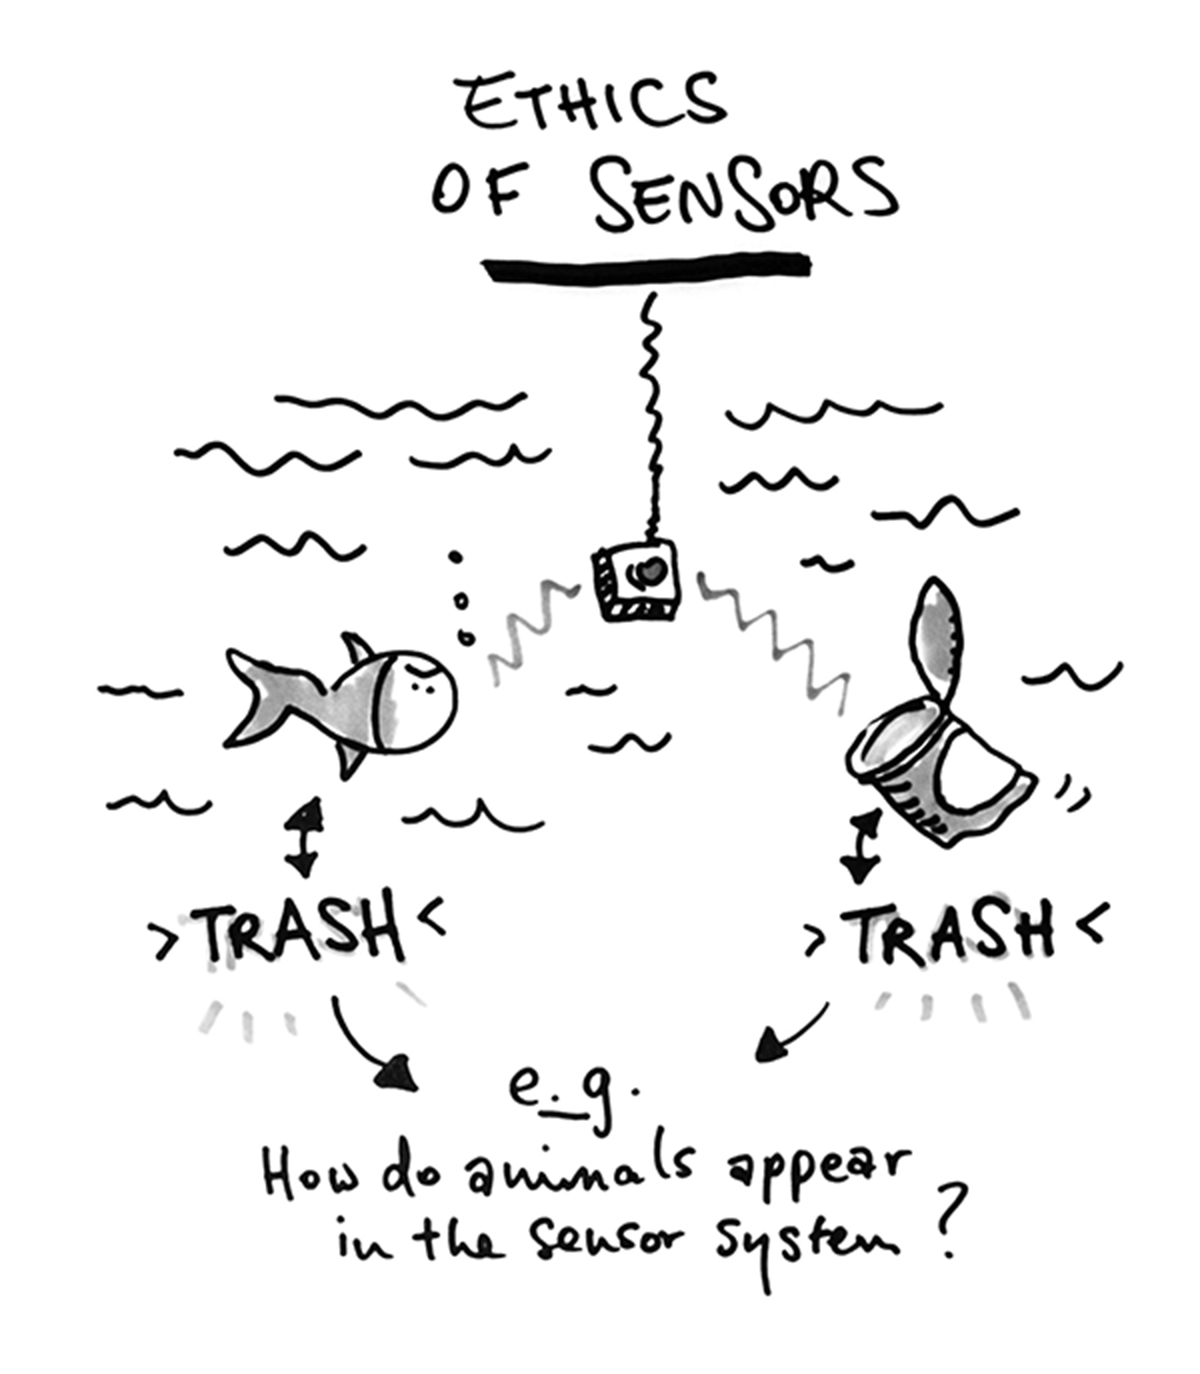 ETHICS
OF SENSORS
> TRASH <
> TRASH <
e.g.
How do animals appear
in the sensor system?